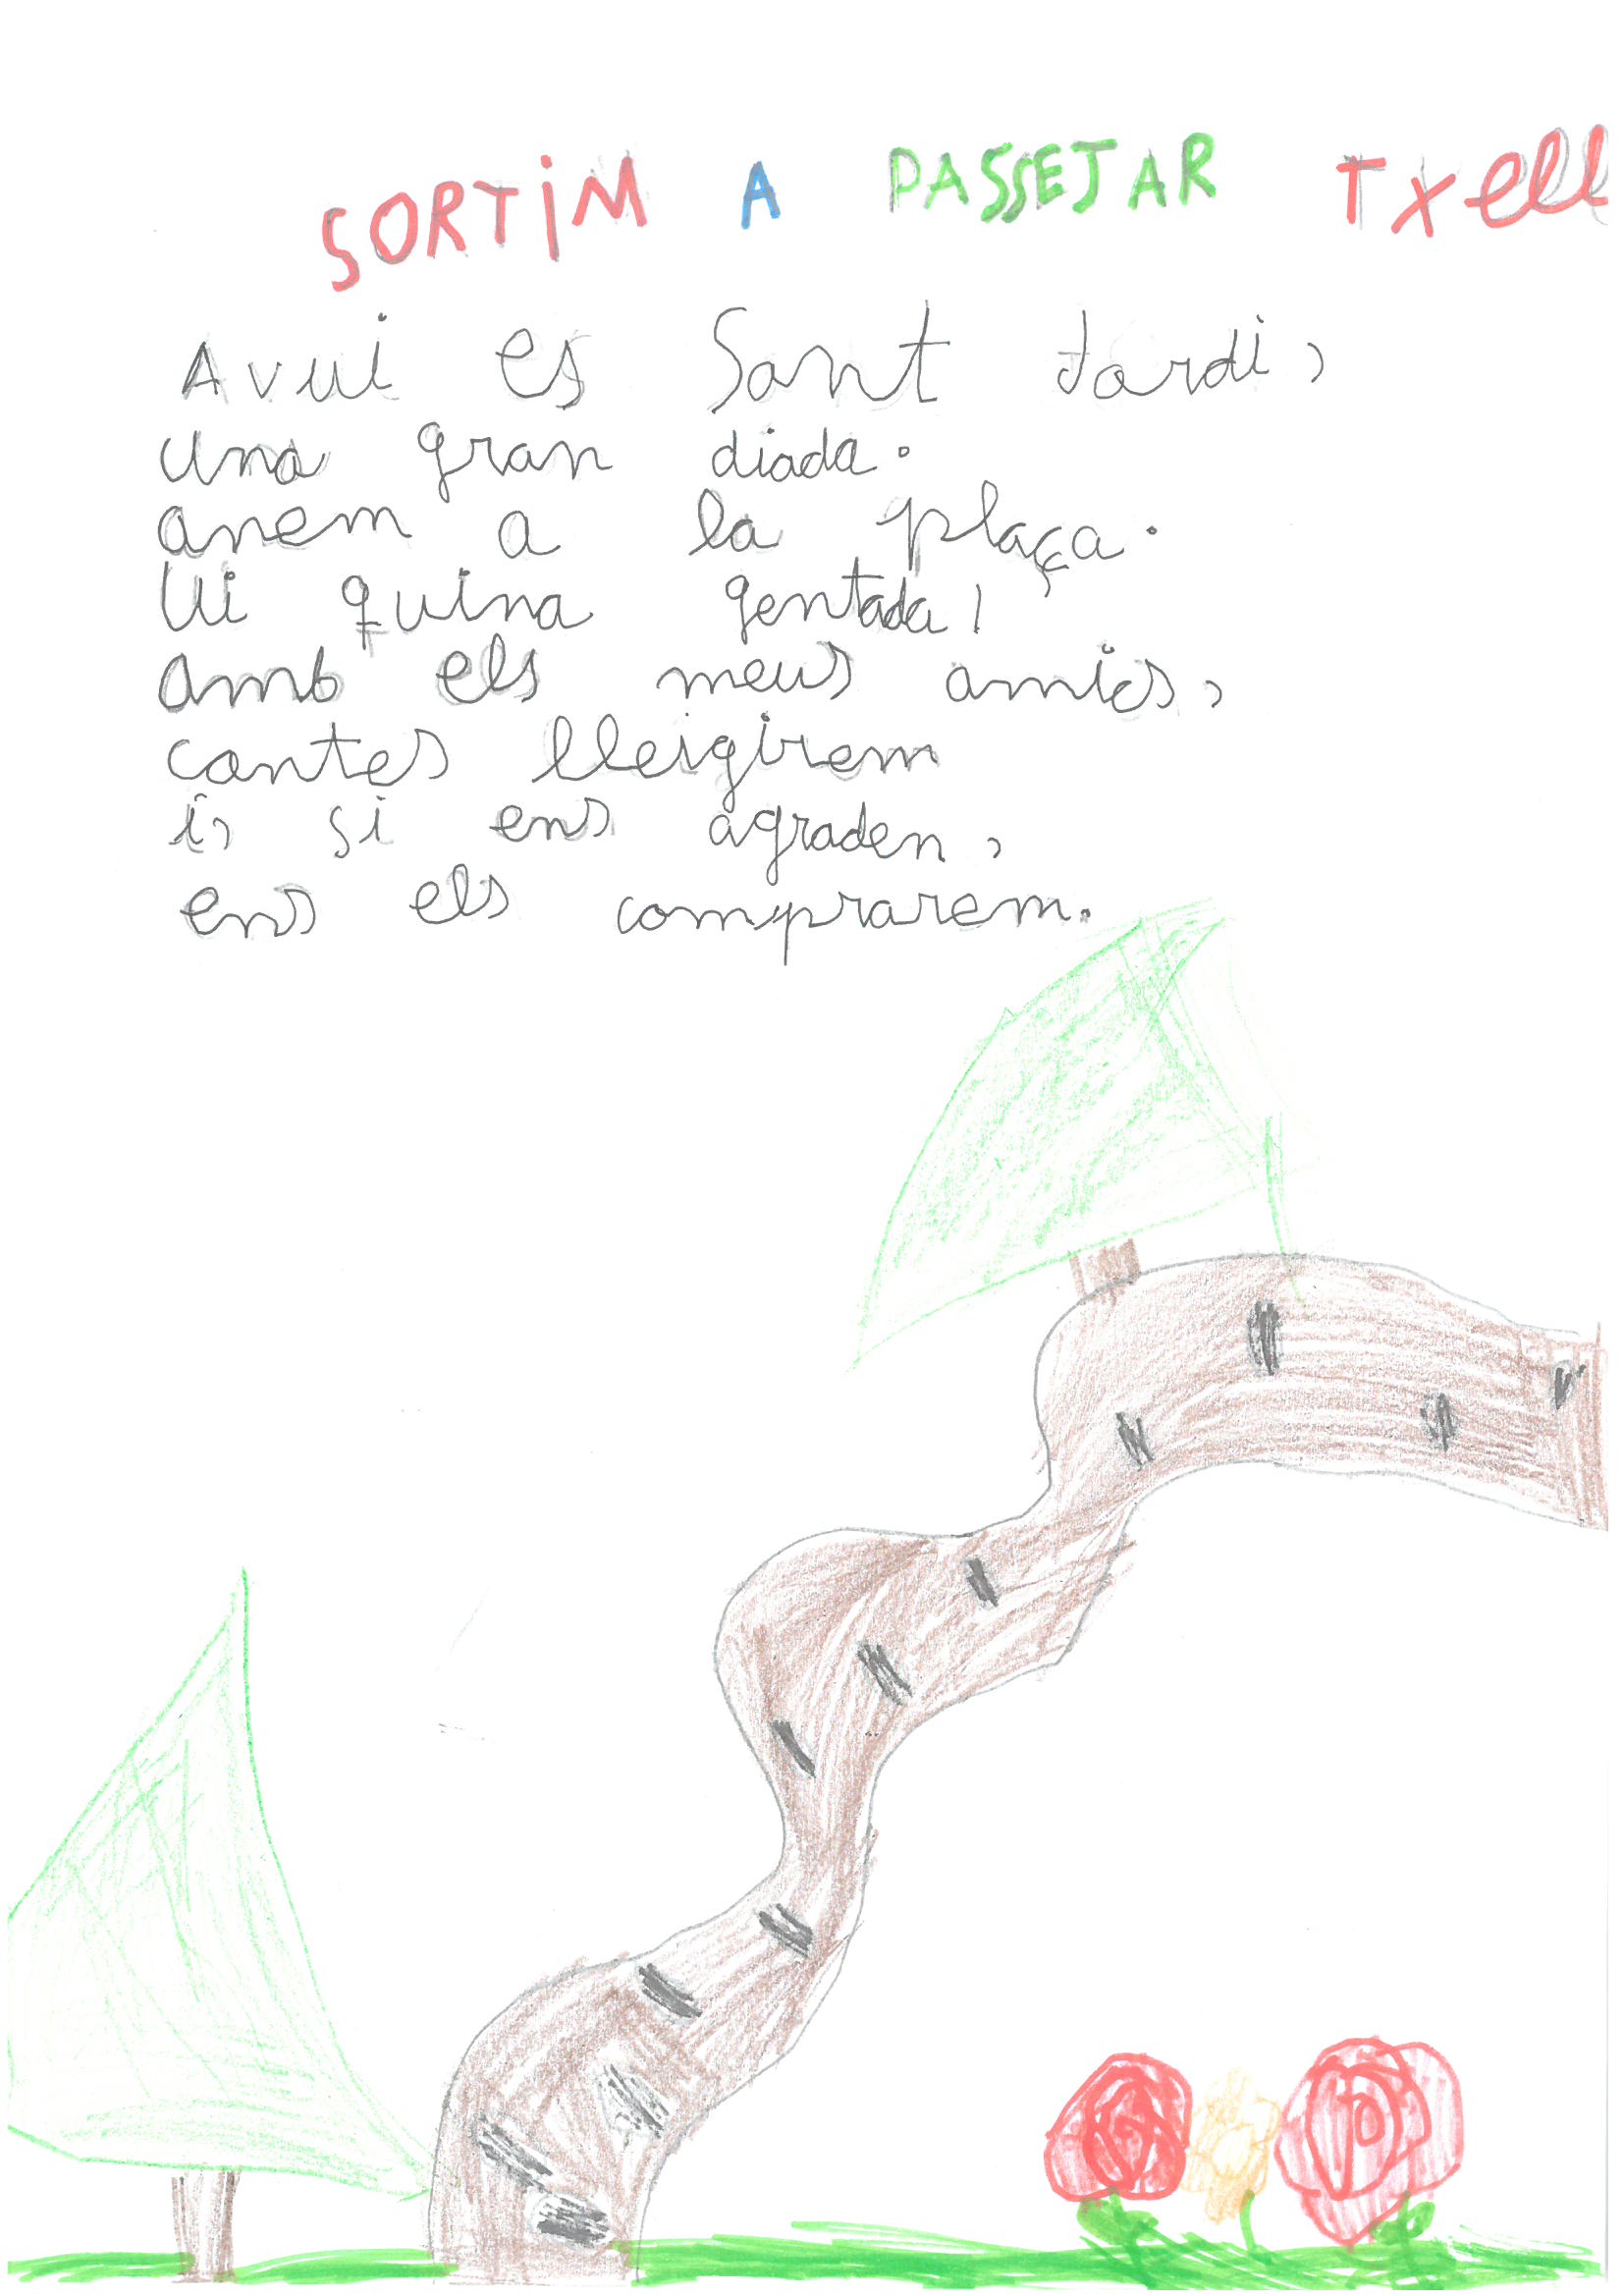 SORTIM A PASSEJAR TXell
Avui es Sant Jordi,
una gran diada.
anem a la plaça.
Ui quina gentada!
amb els meus amics,
contes lleigirem
i, si ens agraden,
ens els comprarem.